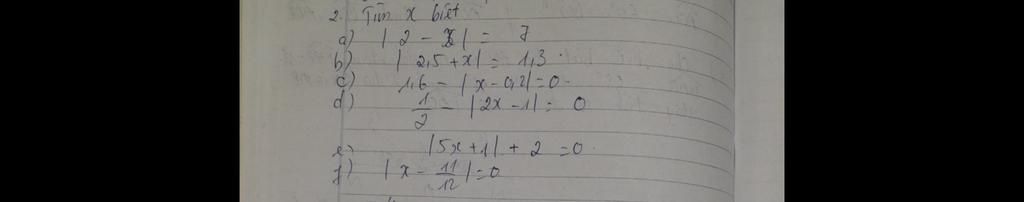 2. Tìm x biết
a) | 2 - x | = 7
b) | 2,5 + x | = 1,3
c) 1,6 - | x - 0,2 | = 0
d) 1/2 - | 2x - 1 | = 0
e) | 5x + 1 | + 2 = 0
f) | x - 11/12 | = 0